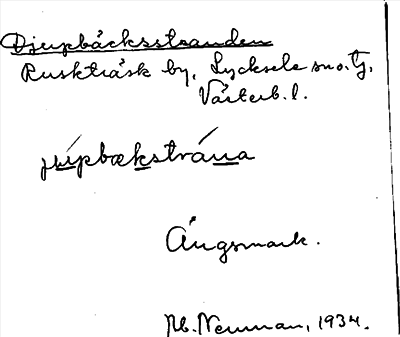 Djupbäcksstranden
Ruskträsk by, Lycksele sn o. tg,
Västerb. l.
jʉ́pbækstrána
Ängsmark.
Neuman, 1934.